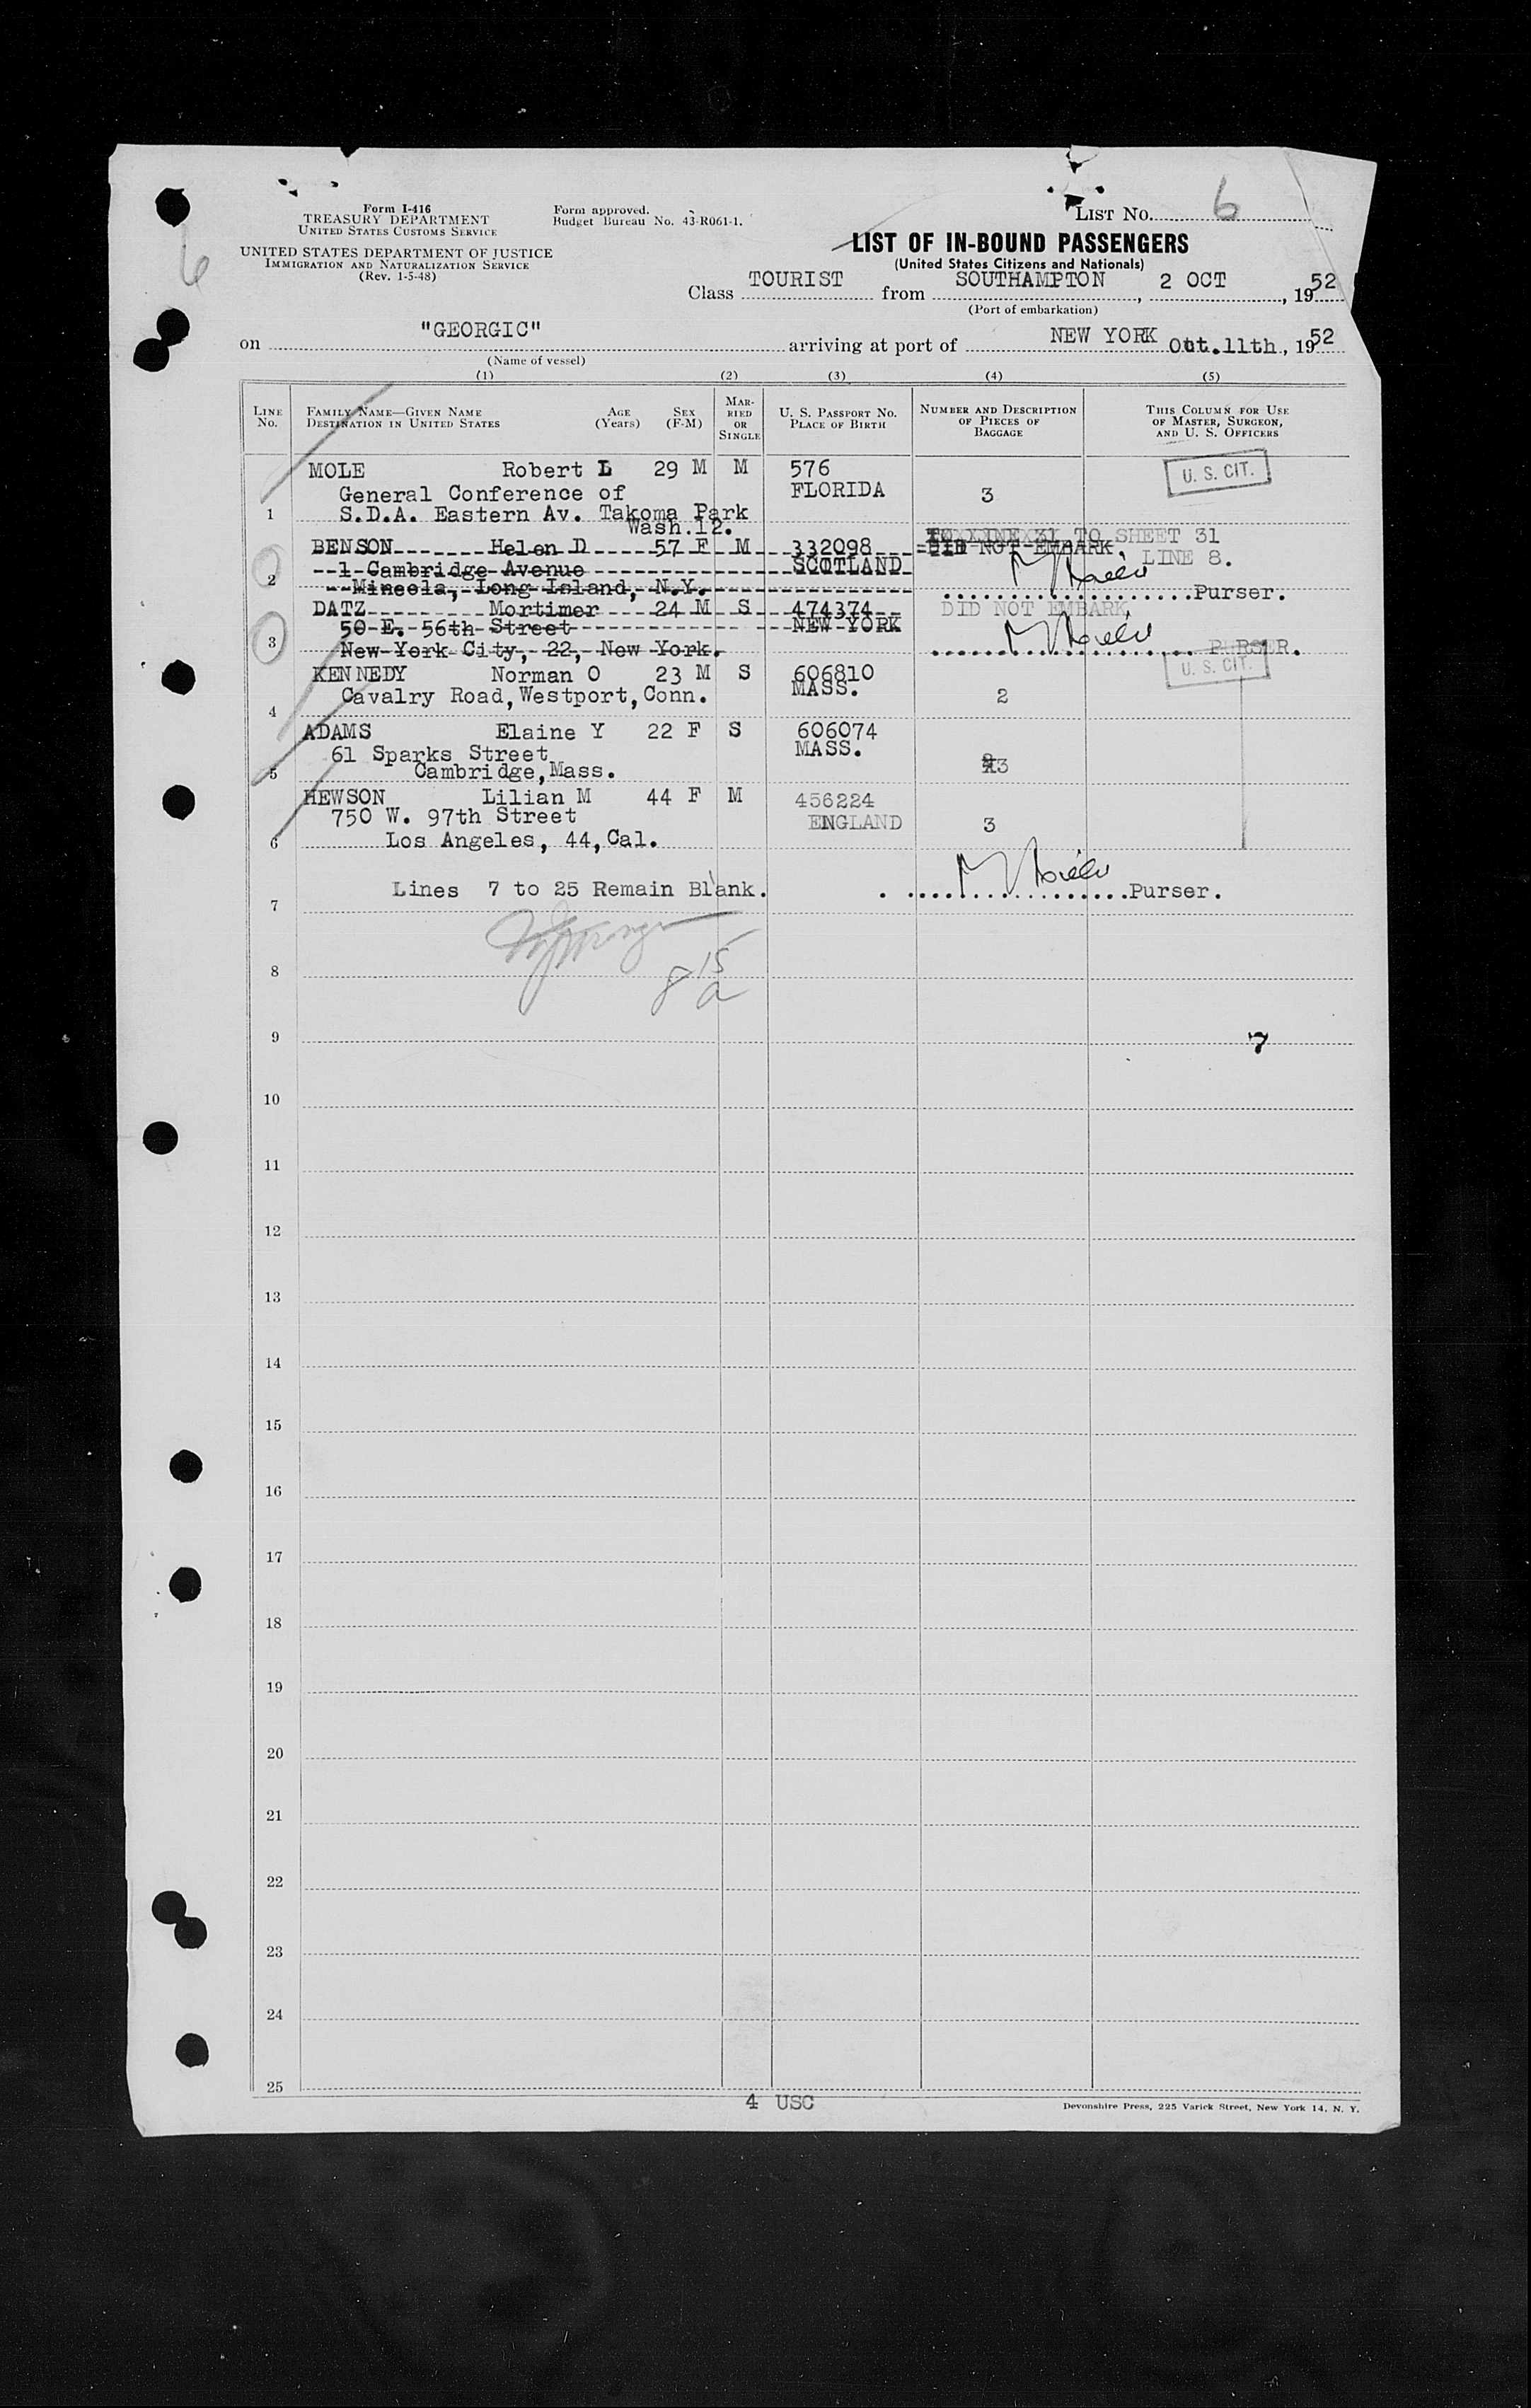 Form I-416
TREASURY DEPARTMENT
UNITED STATES CUSTOMS SERVICE
UNITED STATES DEPARTMENT OF JUSTICE
IMMIGRATION AND NATURALIZATION SERVICE
(Rev. 1-5-48)
Form approved.
Budget Bureau No. 43-R061-1.
6
LIST NO. 6
LIST OF IN-BOUND PASSENGERS
(United States Citizens and Nationals)
Class TOURIST from SOUTHAMPTON, 2 OCT, 1952
(Port of embarkation)
on "GEORGIC" arriving at port of NEW YORK Oct.11th, 1952
(Name of vessel)
(1) (2) (3) (4) (5)
LINE NO.
FAMILY NAME—GIVEN NAME
DESTINATION IN UNITED STATES
AGE (Years)
SEX (F-M)
MARRIED OR SINGLE
U. S. PASSPORT NO.
PLACE OF BIRTH
NUMBER AND DESCRIPTION OF PIECES OF BAGGAGE
THIS COLUMN FOR USE OF MASTER, SURGEON, AND U. S. OFFICERS
MOLE Robert L 29 M M 576 U. S. CIT.
General Conference of FLORIDA 3
1 S.D.A. Eastern Av. Takoma Park
Wash.12.
TO SHEET 31
BENSON Helen D 57 F M 332098 DID NOT EMBARK, LINE 8.
1 Cambridge Avenue SCOTLAND
2 Mineola, Long Island, N.Y. Purser.
DATZ Mortimer 24 M S 474374 DID NOT EMBARK,
50 E. 56th Street NEW YORK
3 New York City, 22, New York. PURSER.
KENNEDY Norman O 23 M S 606810 U. S. CIT.
Cavalry Road, Westport, Conn. MASS. 2
4
ADAMS Elaine Y 22 F S 606074
61 Sparks Street MASS.
5 Cambridge, Mass. 3
HEWSON Lilian M 44 F M 456224
750 W. 97th Street ENGLAND 3
6 Los Angeles, 44, Cal.
Lines 7 to 25 Remain Blank. Purser.
7
8 15
8 a
9 7
10
11
12
13
14
15
16
17
18
19
20
21
22
23
24
25
4 USC
Devonshire Press, 225 Varick Street, New York 14, N. Y.